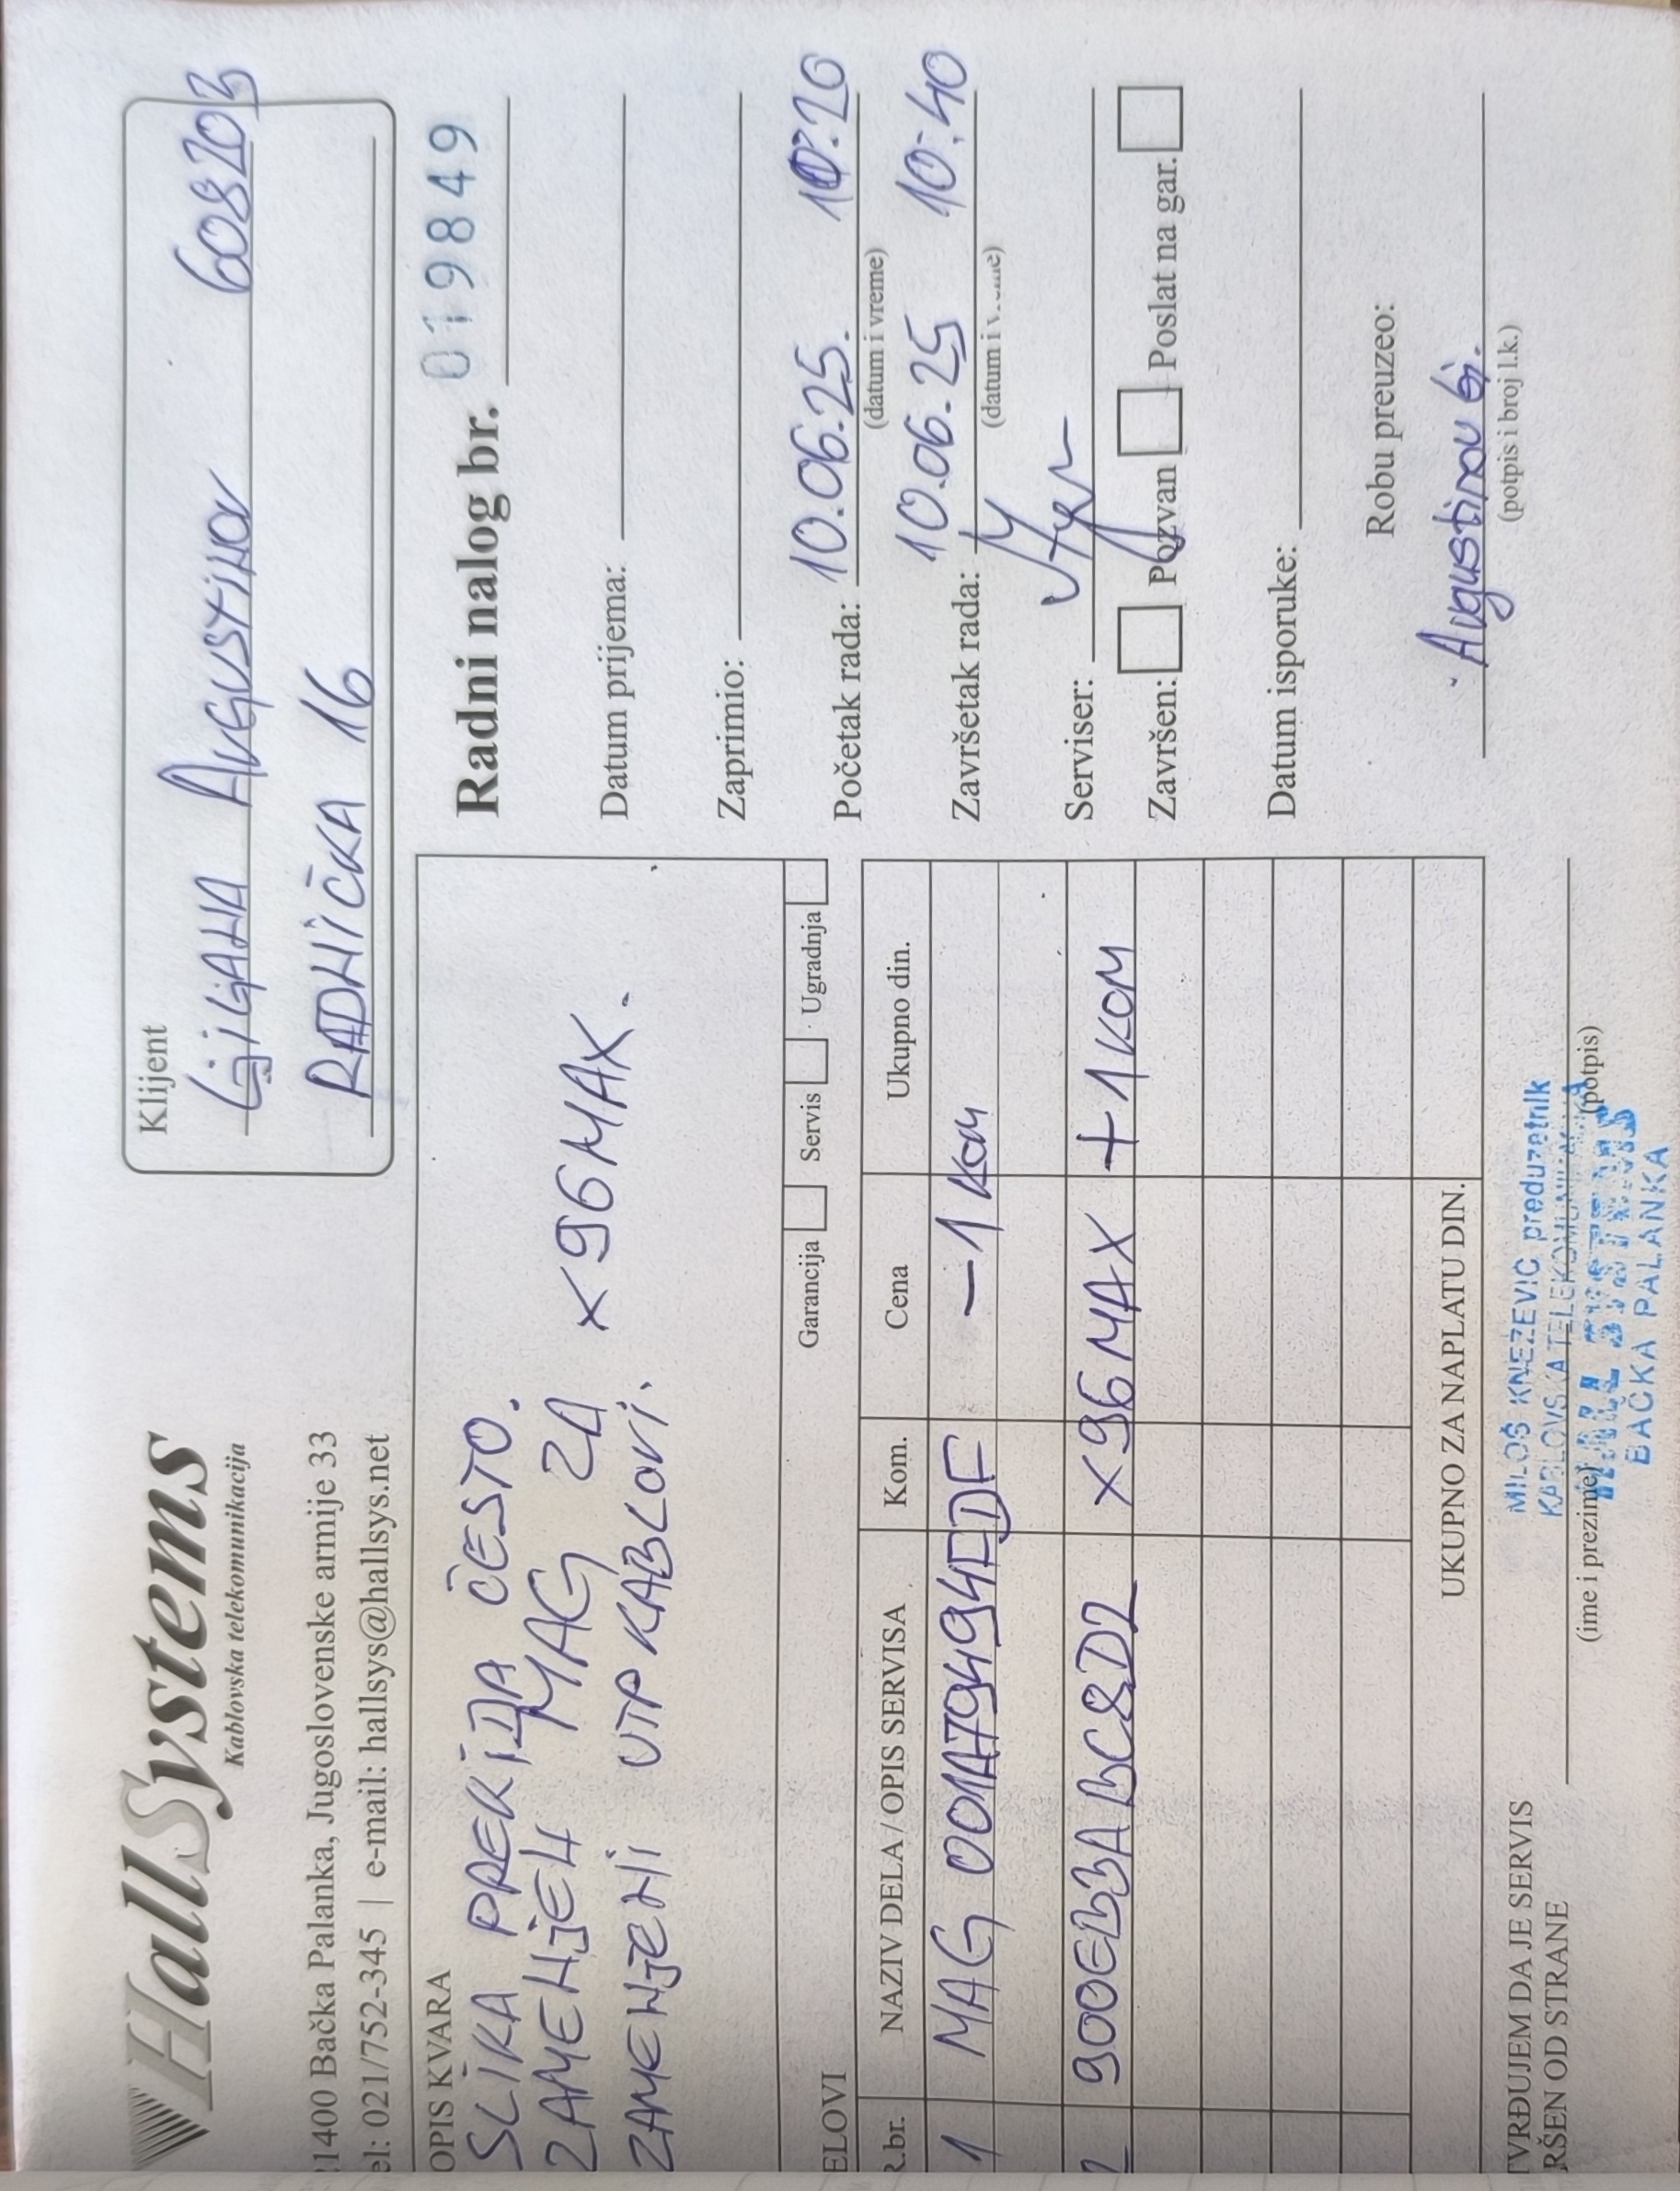 HallSystems
Kablovska telekomunikacija
21400 Bačka Palanka, Jugoslovenske armije 33
el: 021/752-345 | e-mail: hallsys@hallsys.net
Klijent
LJILJANA AVGUSTINOV 608203
RADNIČKA 16
OPIS KVARA
SLIKA PREKIDA ČESTO.
ZAMENJEN MAG ZA X96MAX.
ZAMENJENI UTP KABLOVI.
Garancija Servis Ugradnja
Radni nalog br. 019849
Datum prijema:
Zaprimio:
Početak rada: 10.06.25. 10:20
(datum i vreme)
Završetak rada: 10.06.25 10:40
(datum i vreme)
Serviser:
Završen: Pozvan Poslat na gar.
Datum isporuke:
Robu preuzeo:
Avgustinov Lj.
(potpis i broj l.k.)
ELOVI
R.br. NAZIV DELA / OPIS SERVISA Kom. Cena Ukupno din.
1 MAG 001A79494EDF – 1 KOM
2 900EB3ABBC8D2 X96MAX + 1 KOM
UKUPNO ZA NAPLATU DIN.
TVRĐUJEM DA JE SERVIS
RŠEN OD STRANE
(ime i prezime) (potpis)
MILOŠ KNEZEVIĆ preduzetnik
KABLOVSKA TELEKOMUNIKACIJA
HALL SYSTEMS
BAČKA PALANKA